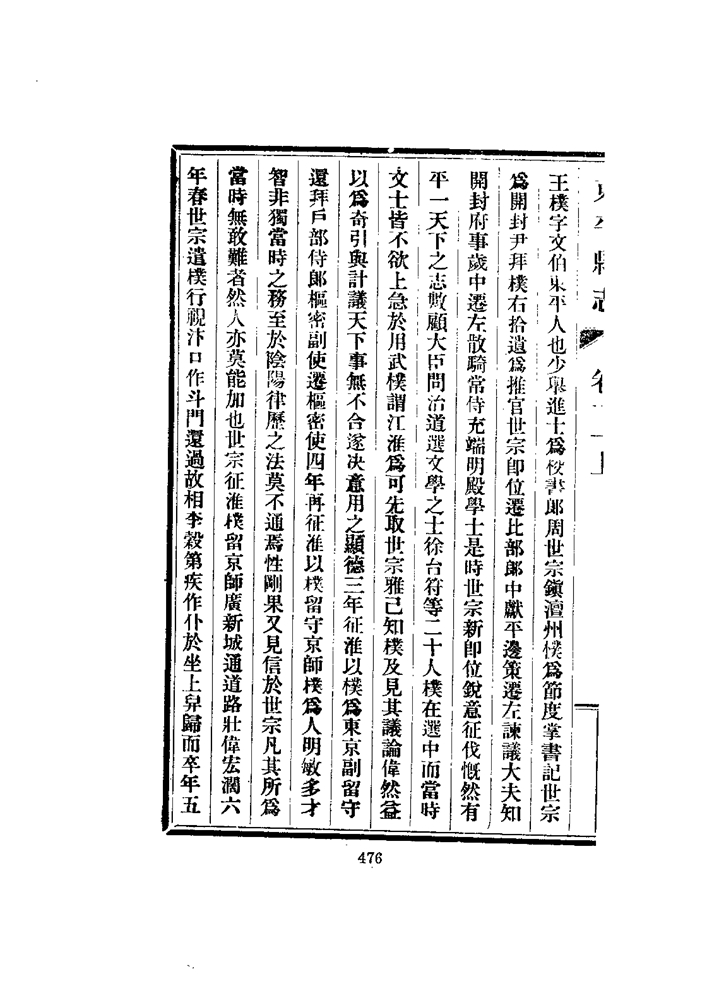 東平縣志 卷十一上
王樸字文伯東平人也少舉進士爲校書郎周世宗鎮澶州樸爲節度掌書記世宗
爲開封尹拜樸右拾遺爲推官世宗卽位遷比部郎中獻平邊策遷左諫議大夫知
開封府事歲中遷左散騎常侍充端明殿學士是時世宗新卽位銳意征伐慨然有
平一天下之志數顧大臣問治道選文學之士徐台符等二十人樸在選中而當時
文士皆不欲上急於用武樸謂江淮爲可先取世宗雅已知樸及見其議論偉然益
以爲奇引與計議天下事無不合遂决意用之顯德三年征淮以樸爲東京副留守
還拜戶部侍郎樞密副使遷樞密使四年再征淮以樸留守京師樸爲人明敏多才
智非獨當時之務至於陰陽律歷之法莫不通焉性剛果又見信於世宗凡其所爲
當時無敢難者然人亦莫能加也世宗征淮樸留京師廣新城通道路壯偉宏濶六
年春世宗遣樸行視汴口作斗門還過故相李穀第疾作仆於坐上舁歸而卒年五
476